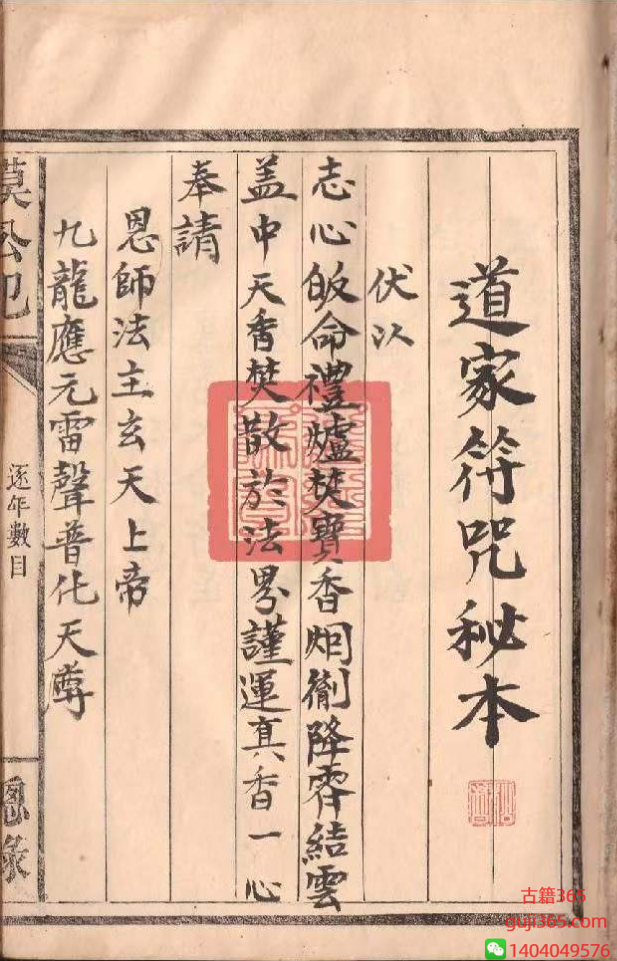 道家符咒秘本
伏以
志心皈命禮爐焚寶香烟衝降霄結雲
盖中天香焚散於法界謹運真香一心
奉請
恩師法主玄天上帝
九龍應元雷聲普化天尊
逐年數目
古籍365
guji365.com
1404049576